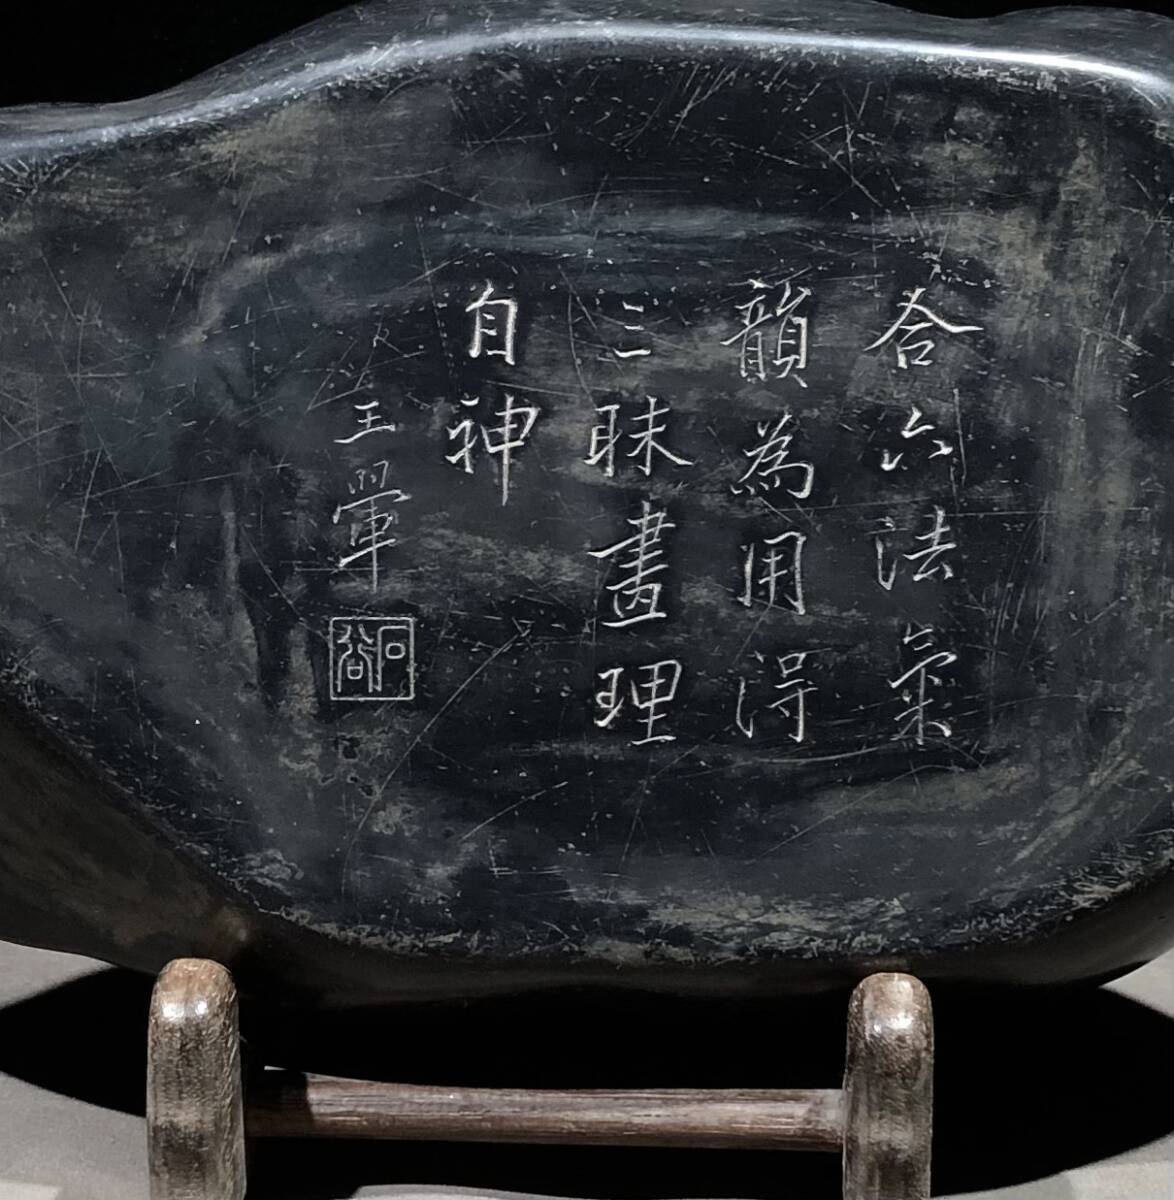 合六法氣
韻為用得
三昧畫理
自神
王翬
石谷